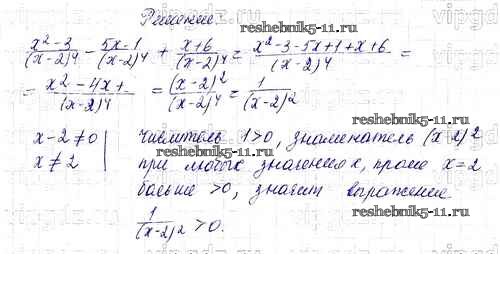 Решение.
(x²-3)/(x-2)⁴ - (5x-1)/(x-2)⁴ + (x+6)/(x-2)⁴ = (x²-3-5x+1+x+6)/(x-2)⁴ =
= (x²-4x+)/(x-2)⁴ = (x-2)²/(x-2)⁴ = 1/(x-2)²
x-2≠0 | числитель 1>0, знаменатель (x-2)²
x≠2 | при любых значениях, кроме x=2
больше >0, значит выражение
1/(x-2)² >0.
reshebnik5-11.ru
reshebnik5-11.ru
reshebnik5-11.ru
vipgdz